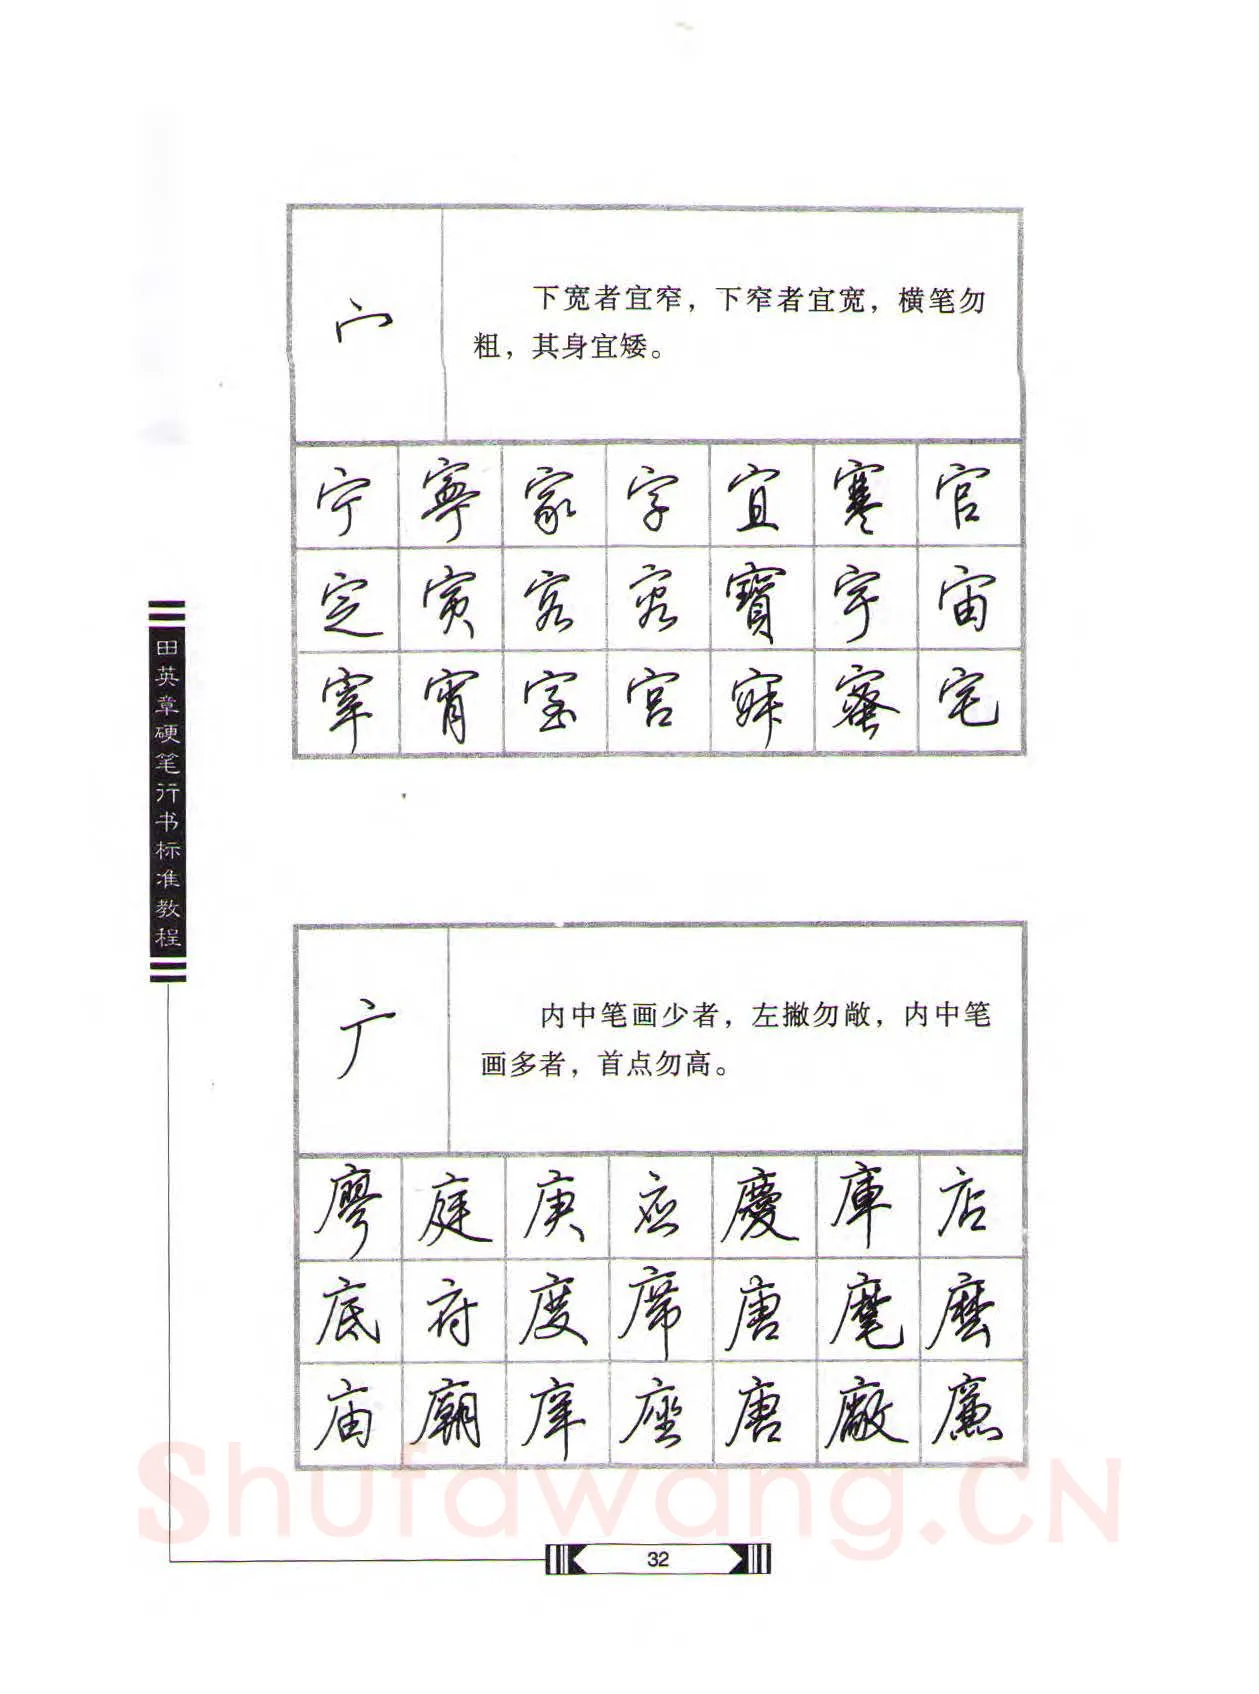 宀
下宽者宜窄，下窄者宜宽，横笔勿
粗，其身宜矮。
宁 寧 家 字 宜 寒 官
定 寅 客 容 寶 宇 宙
宰 宵 宝 宫 寐 蜜 宅
田英章硬笔行书标准教程
广
内中笔画少者，左撇勿敞，内中笔
画多者，首点勿高。
廖 庭 庚 应 慶 庫 店
底 府 度 席 唐 麾
庙 廟 庠 座 唐 廠 廉
Shufawang.CN
32